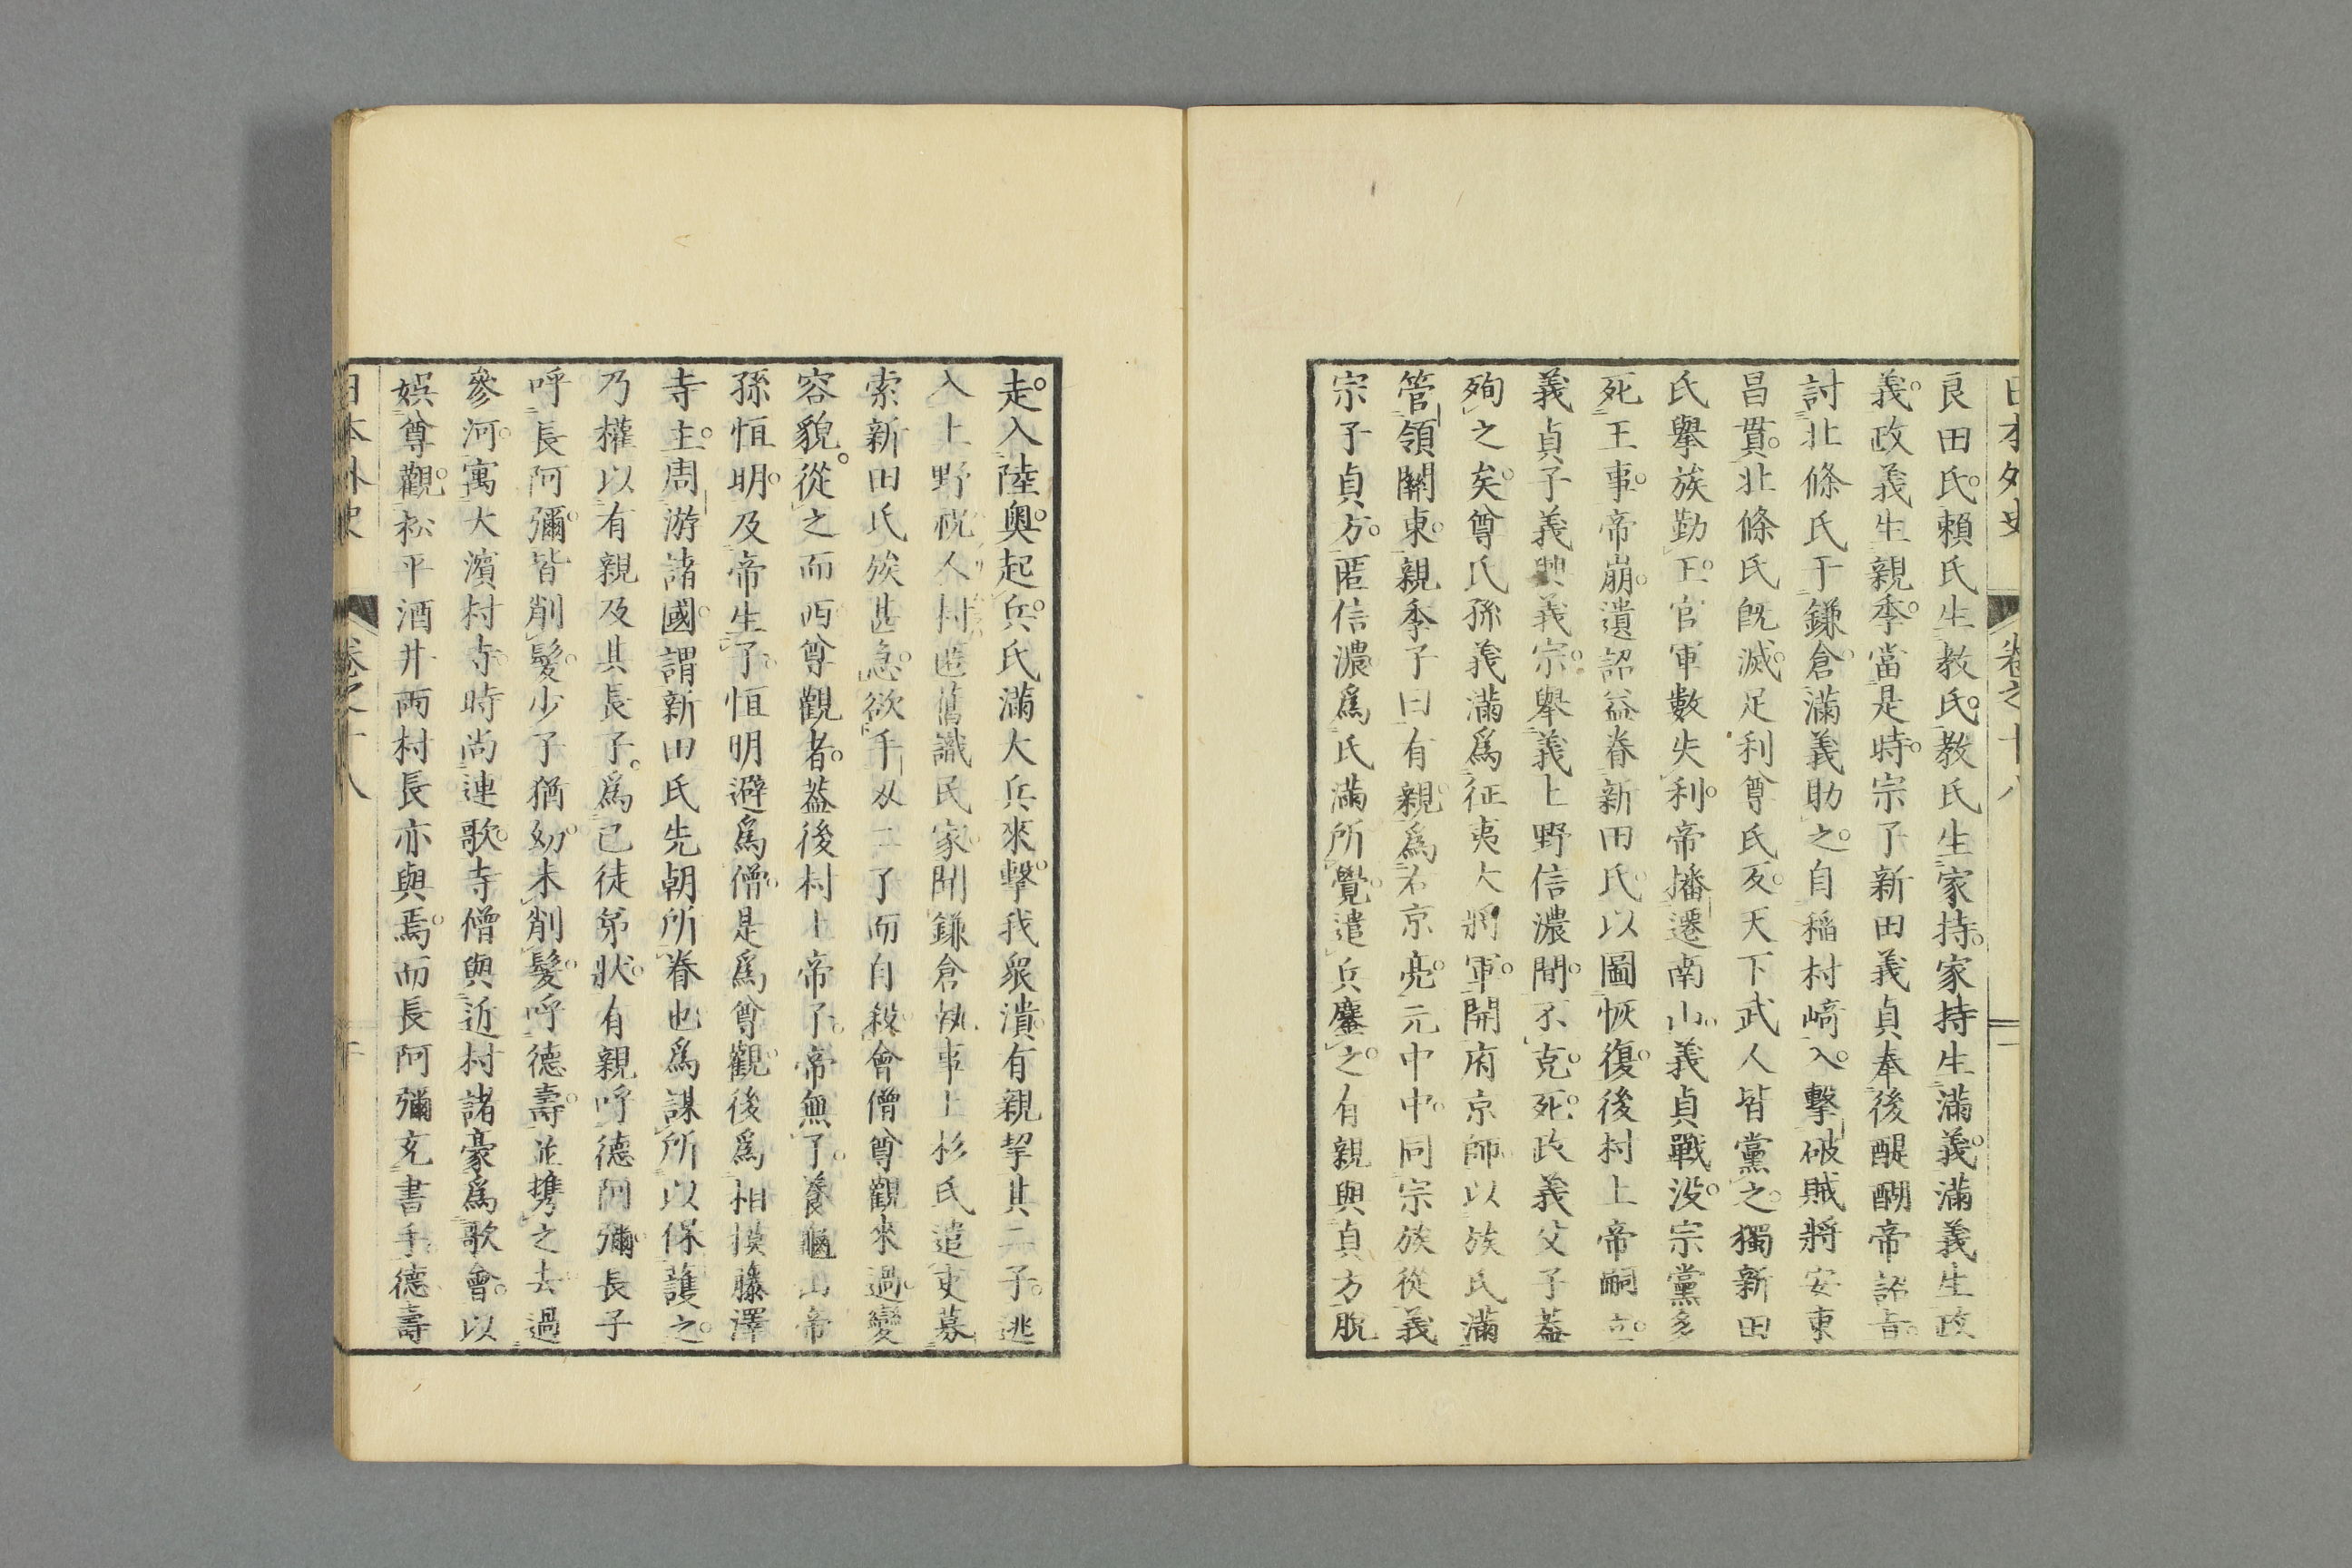 日本外史 卷之十八
良田氏。賴氏生教氏。教氏生家持。家持生滿義。滿義生政
義。政義生親季。當是時。宗子新田義貞奉後醍醐帝詔旨。
討北條氏于鎌倉。滿義助之。自稲村﨑入。擊破賊將安東
昌貫。北條氏既滅。足利尊氏反。天下武人皆黨之。獨新田
氏擧族勤王。官軍數失利。帝播遷南山。義貞戰沒。宗黨多
死王事。帝崩。遺詔益眷新田氏。以圖恢復。後村上帝嗣立。
義貞子義興義宗。舉義上野信濃間。不克死。政義父子蓋
殉之矣。尊氏孫義滿爲征夷大將軍。開府京師。以族氏滿
管領關東。親季子曰有親。親爲右京亮。元中中。同宗族從義
宗子貞方。匿信濃。爲氏滿所覺。遣兵鏖之。有親與貞方脫
走。入陸奥。起兵。氏滿大兵來擊。我衆潰。有親挈其二子。逃
入上野祝人村。匿舊識民家。聞鎌倉執事上杉氏遣吏募
索新田氏族甚急。欲手刃二子而自殺。會僧尊觀來過。變
容貌。從之而西。尊觀者。蓋後村上帝子。帝無子。養龜山帝
孫恒明。及帝生子。恒明避爲僧。是爲尊觀。後爲相摸藤澤
寺主。周游諸國。謂新田氏先朝所眷也。爲謀所以保護之。
乃權以有親及其長子。爲已徒弟狀。有親呼德阿彌。長子
呼長阿彌。皆削髮。少子猶幼。未削髮。呼德壽。並携之去。過
參河。寓大濱村寺。時尚連歌。寺僧與近村諸豪爲歌會。以
娯尊觀。松平酒井兩村長亦與焉。而長阿彌充書手。德壽
日本外史 卷之十八